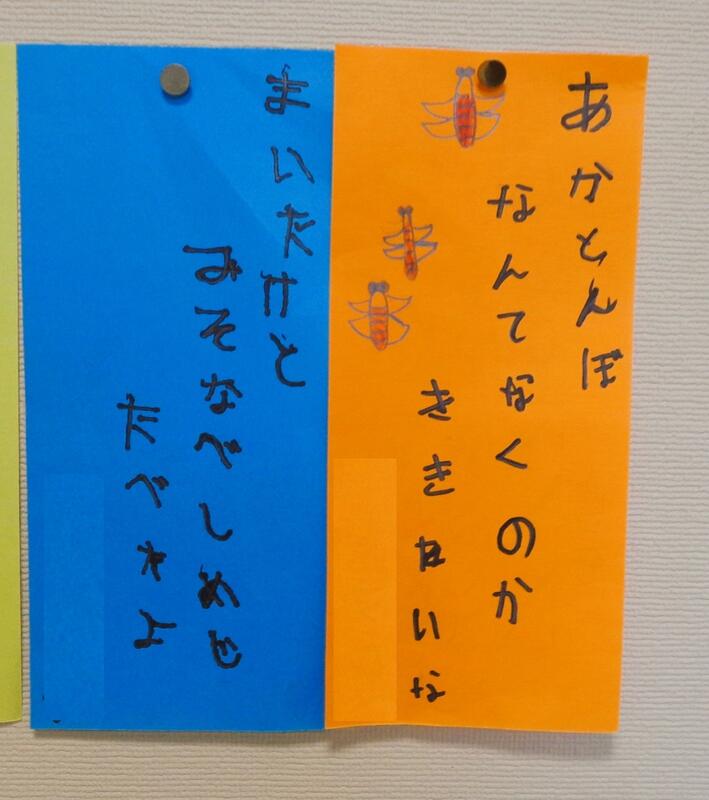 あかとんぼ
なんてなくのか
ききたいな
まいたけと
みそなべしめじ
たべたよ